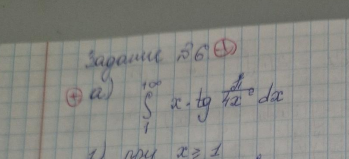 Задание №6 ⊕
⊕ а) ∫₁^{+∞} x · tg π/4x dx
1) при x ≥ 1